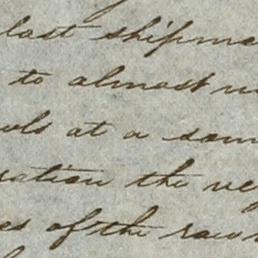 last shipme
to almost
ols at a sam
ration the ve
es of the raw